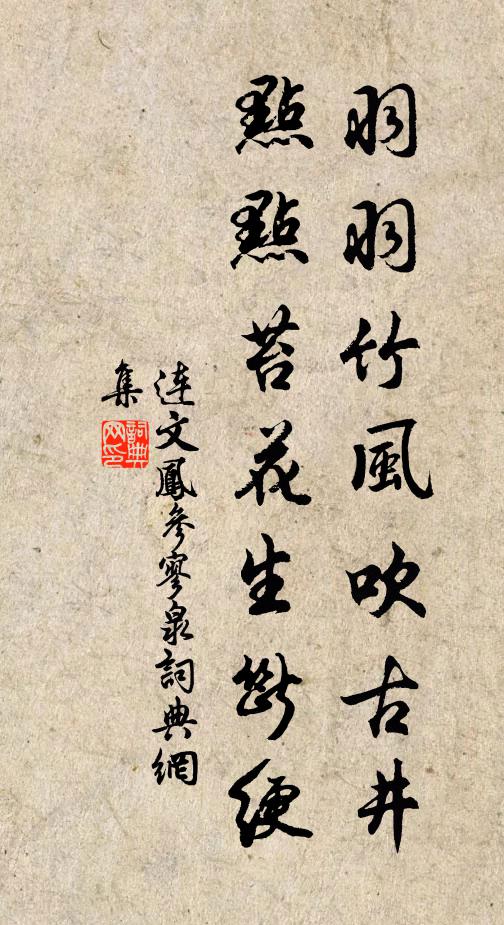 羽羽竹風吹古井
點點苔花生斷綆
連文鳳參寥泉詞典網
集
詞典
网印